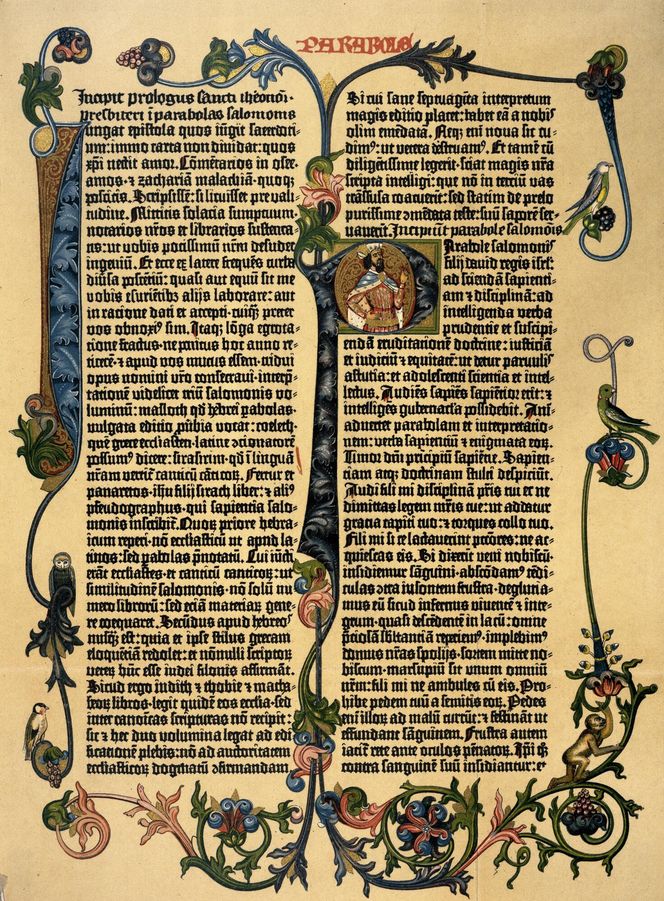 PARABOLE
Incipit prologus sancti iheronimi
presbiteri ī parabolas salomonis
Iungat epistola quos iūgit sacerdoti-
um: immo carta non dividat: quos
xp̄i nectit amor. Cōmētarios in osee.
amos. ⁊ zachariā malachiā. quoqȝ
poscitis. Scripsissē: si licuisset pre vali-
tudine. Mittitis solacia sumptuum.
notarios nr̄os et librarios sustenta-
tis: ut vobis potissimū nr̄m desudet
ingeniū. Et ecce ex latere frequēs turba
diūsa poscētiū: quasi aut equū sit me
vobis esuriētibꝫ alijs laborare: aut
in ratione dati et accepti. cuiqȝ preter
vos obnoxiꝰ sim. Itaqȝ lōga egrota-
tione fractus. ne penitus hoc anno re-
ticerē. ⁊ apud vos mutus essem. tridui
opus nomini vr̄o consecraui. interp̄-
tationē videlicet triū salomonis vo-
luminū: masloth qd̄ hebrei p̄abolas.
vulgata editio ꝓubia vocat: coeleth.
quē grece ecclīasten. latine ꝯcionatorē
possumꝰ dicere: sirasirim. qd̄ ī linguā
nr̄am vertit̄ canticū cāticoꝝ. Fertur et
panaretos. ih̄u filij sirach liber: ⁊ aliꝰ
pseudographus. qui sapientia salo-
monis inscribit̄. Quoꝝ priore hebra-
icum reperi. nō eccl̄asticū ut apud la-
tinos: sed p̄abolas p̄notatū. Cui iūcti
erāt ecclīastes. et canticū canticoꝝ: ut
similitudinē salomonis. nō solū nu-
mero librorū: sed etiā materiaꝝ gene-
re coequaret. Secūdus apud hebreos
nusqȝ est: quia et ipse stilus grecam
eloquētiā redolet: et nōnulli scriptoꝝ
veteꝝ hūc esse iudei filonis affirmāt.
Sicud ergo iudith ⁊ thobie ⁊ macha-
beoꝝ libros. legit quidē eos ecclīa. sed
inter canoīcas scripturas nō recipit:
sic ⁊ hec duo volumina legat ad edi-
ficationē plebis: nō ad auctoritatem
eccl̄asticoꝝ dogmatū ꝯfirmandam.
Si cui sane septuagīta interpretum
magis editio placet: habet eā a nobis
olim emēdatā. Neqȝ enī noua sic cu-
dimꝰ: ut vetera destruamꝰ. Et tamē cū
diligētissime legerit. sciat magis nr̄a
scripta intelligi: que nō in terciū vas
trāsfusa coacuerīt: sed statim de prelo
purissime ꝯmēdata teste: suū saporē ser-
uauerīt. Incipiūt parabole salomōis
Parabole salomonis
filij dauid regis isrl̄:
ad sciendā sapienti-
am ⁊ disciplinā: ad
intelligenda verba
prudentie et suscipi-
endā eruditationē doctrine: iusticiā
et iudiciū ⁊ equitatē: ut detur paruulis
astutia: et adolescenti scientia et intel-
lectus. Audiēs sapiēs sapiētior erit: ⁊
intelligēs gubernacl̄a possidebit. Ani-
aduertet parabolam et interpretatio-
nem: verba sapientiū ⁊ enigmata eoꝝ.
Timor dn̄i principiū sapiētie. Sapien-
tiam atqȝ doctrinam stulti despiciūt.
Audi fili mi disciplinā pr̄is tui et ne
dimittas legem mr̄is tue: ut addatur
gracia capiti tuo: ⁊ torques collo tuo.
Fili mi si te lactauerint pctōres: ne ac-
quiescas eis. Si dixerīt veni nobiscū.
insidiemur sāguini. abscōdamꝰ tēdi-
culas ꝯtra insontem frustra. deglutia-
mus eū sicud infernus viuentē ⁊ inte-
grum. quasi descēdētē in lacū: omnē
p̄ciosā sb̄stantiā reperiemꝰ. implebimꝰ
domus nr̄as spolijs. sortem mitte no-
biscum. marsupiū sit vnum omniū
nr̄m: fili mi ne ambules cū eis. Pro-
hibe pedem tuū a semitis eoꝝ. Pedes
enī illoꝝ ad malū currūt: ⁊ festināt ut
effundant sāguinem. Frustra autem
iacit̄ rete ante oculos pēnatoꝝ. Ipi̅ qȝ
contra sanguinē suū insidiantur: et